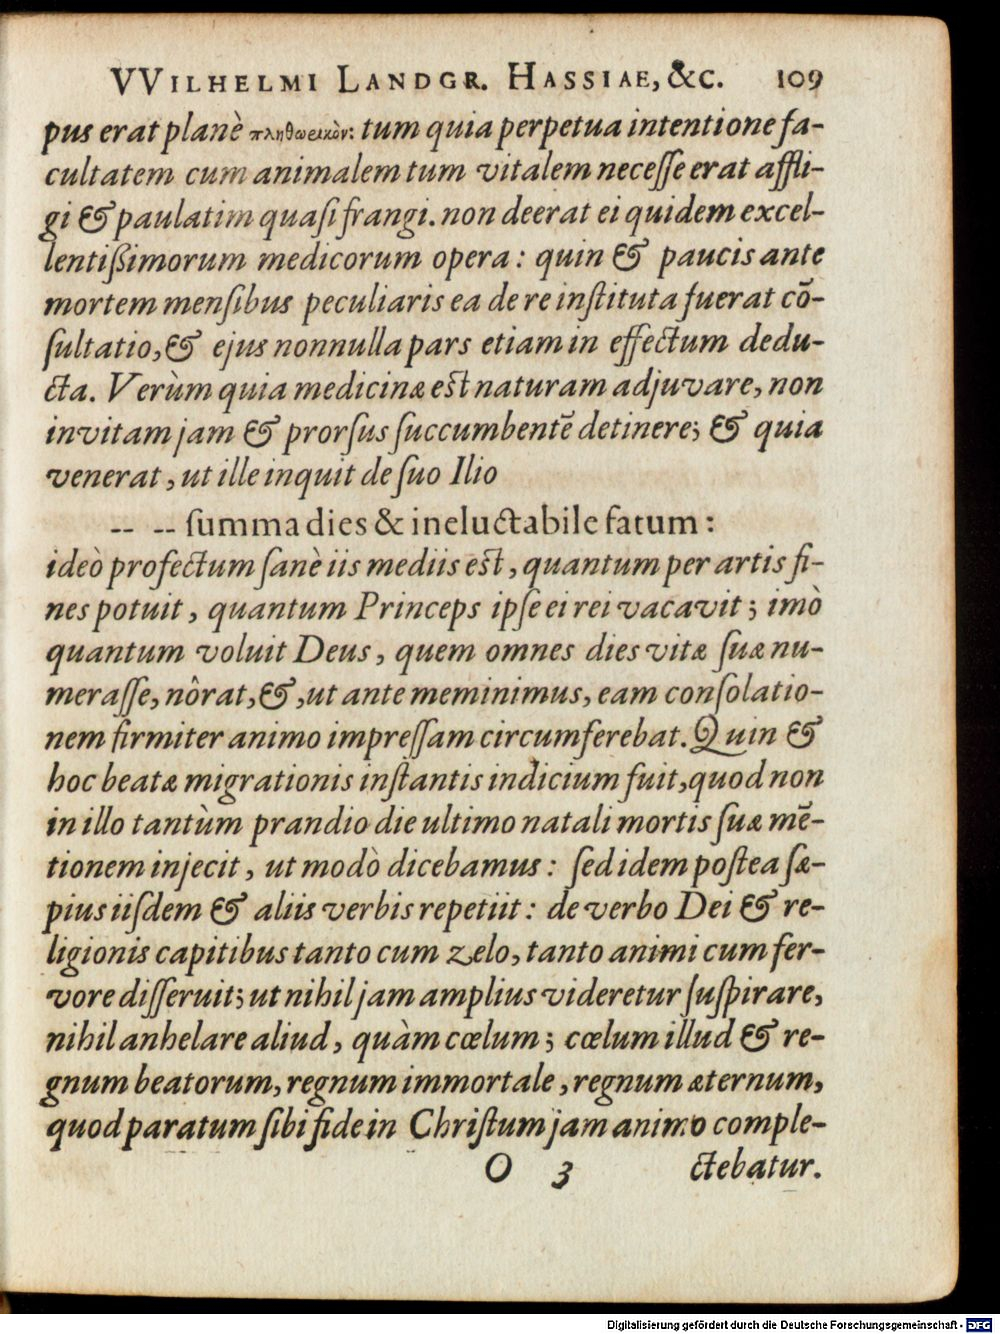 VVILHELMI LANDGR. HASSIAE, &C. 109
pus erat planè πληθωρικὸν: tum quia perpetua intentione fa-
cultatem cum animalem tum vitalem neceſſe erat affli-
gi & paulatim quaſi frangi. non deerat ei quidem excel-
lentiſſimorum medicorum opera: quin & paucis ante
mortem menſibus peculiaris ea de re inſtituta fuerat cō-
ſultatio, & ejus nonnulla pars etiam in effectum dedu-
cta. Verùm quia medicinæ eſt naturam adjuvare, non
invitam jam & prorſus ſuccumbentē detinere; & quia
venerat, ut ille inquit de ſuo Ilio
-- -- ſumma dies & ineluctabile fatum:
ideò profectum ſanè iis mediis eſt, quantum per artis fi-
nes potuit, quantum Princeps ipſe ei rei vacavit; imò
quantum voluit Deus, quem omnes dies vitæ ſuæ nu-
meraſſe, nôrat, &, ut ante meminimus, eam conſolatio-
nem firmiter animo impreſſam circumferebat. Quin &
hoc beatæ migrationis inſtantis indicium fuit, quod non
in illo tantùm prandio die ultimo natali mortis ſuæ mē-
tionem injecit, ut modò dicebamus: ſed idem poſtea ſæ-
pius iiſdem & aliis verbis repetiit: de verbo Dei & re-
ligionis capitibus tanto cum zelo, tanto animi cum fer-
vore diſſeruit; ut nihil jam amplius videretur ſuſpirare,
nihil anhelare aliud, quàm cœlum; cœlum illud & re-
gnum beatorum, regnum immortale, regnum æternum,
quod paratum ſibi fide in Chriſtum jam animo comple-
O 3 ctebatur.
Digitalisierung gefördert durch die Deutsche Forschungsgemeinschaft - DFG